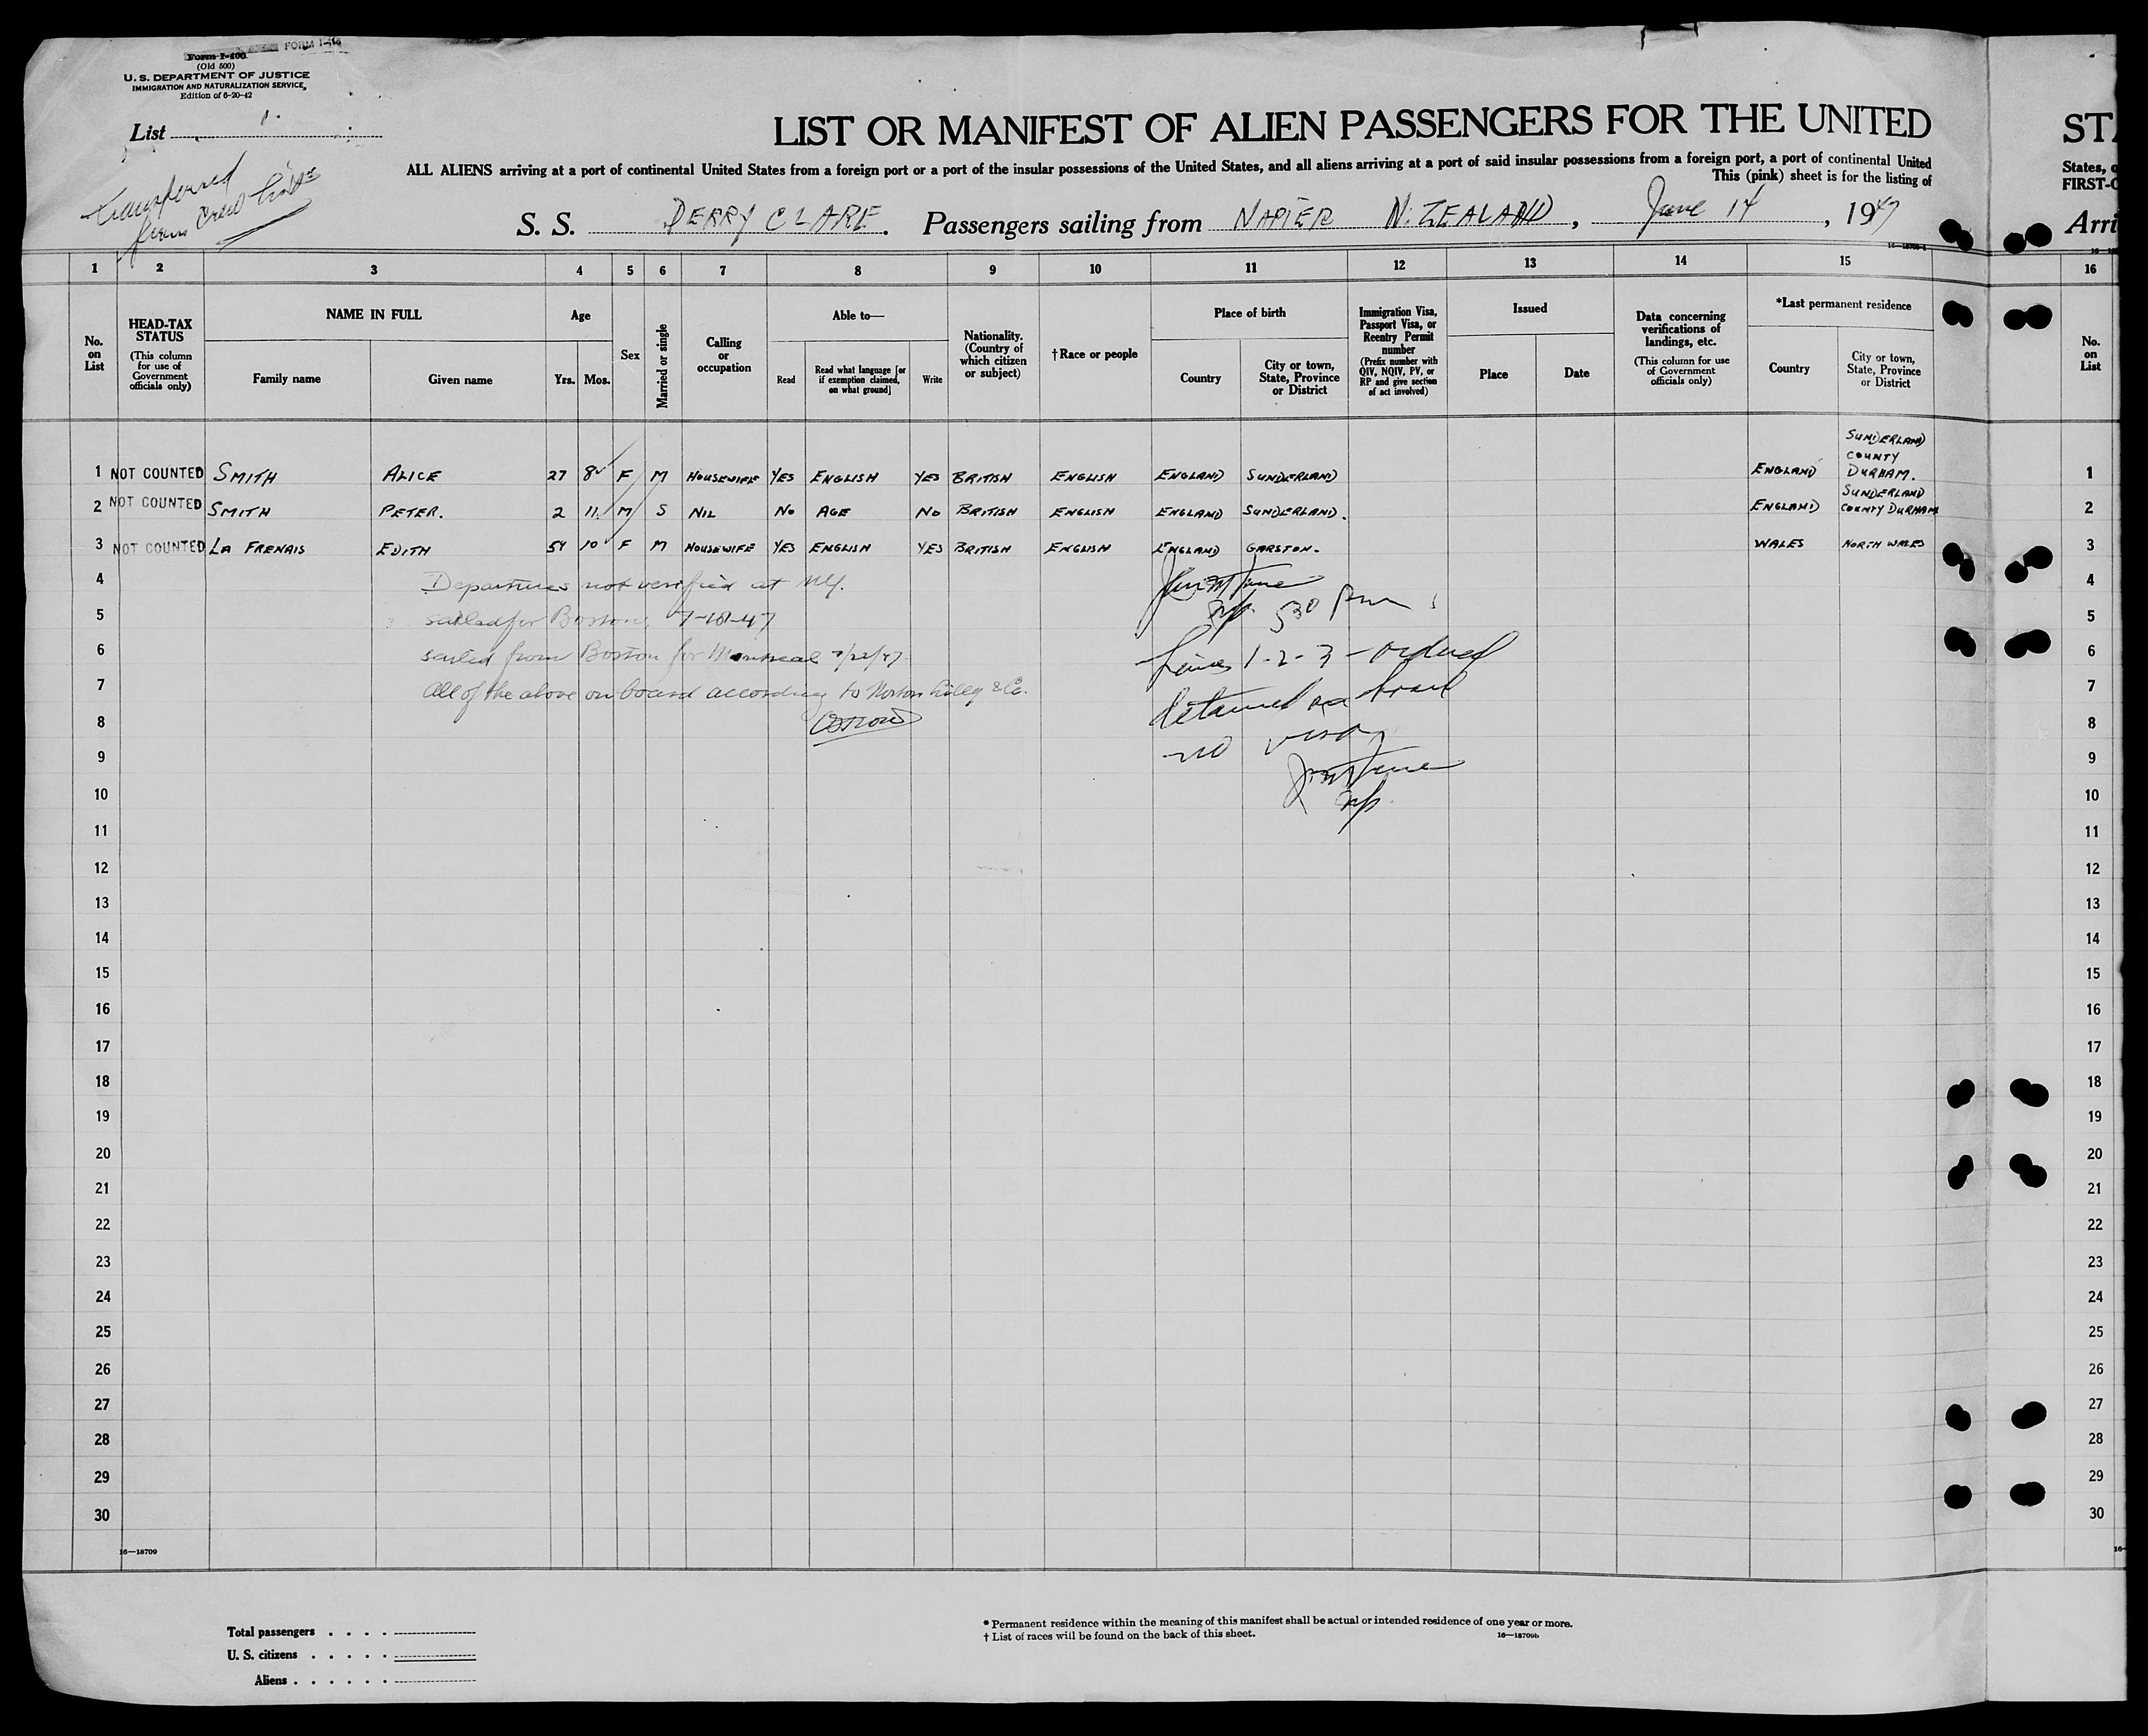 FORM I-416
Form I-400
(Old 500)
U. S. DEPARTMENT OF JUSTICE
IMMIGRATION AND NATURALIZATION SERVICE
Edition of 6-20-42
List 1.
Transferred
from Crew List
LIST OR MANIFEST OF ALIEN PASSENGERS FOR THE UNITED STA
ALL ALIENS arriving at a port of continental United States from a foreign port or a port of the insular possessions of the United States, and all aliens arriving at a port of said insular possessions from a foreign port, a port of continental United States, o
This (pink) sheet is for the listing of FIRST-C
S. S. DERRY CLARE. Passengers sailing from NAPIER N. ZEALAND, June 14, 1947 Arri
1 2 3 4 5 6 7 8 9 10 11 12 13 14 15 16
No. on List
HEAD-TAX STATUS
(This column for use of Government officials only)
NAME IN FULL
Family name
Given name
Age
Yrs. Mos.
Sex
Married or single
Calling or occupation
Able to—
Read
Read what language [or if exemption claimed, on what ground]
Write
Nationality. (Country of which citizen or subject)
†Race or people
Place of birth
Country
City or town, State, Province or District
Immigration Visa, Passport Visa, or Reentry Permit number
(Prefix number with QIV, NQIV, PV, or RP and give section of act involved)
Issued
Place
Date
Data concerning verifications of landings, etc.
(This column for use of Government officials only)
*Last permanent residence
Country
City or town, State, Province or District
No. on List
1 NOT COUNTED SMITH ALICE 27 8 F M HOUSEWIFE YES ENGLISH YES BRITISH ENGLISH ENGLAND SUNDERLAND ENGLAND SUNDERLAND COUNTY DURHAM. 1
2 NOT COUNTED SMITH PETER. 2 11 M S NIL NO AGE NO BRITISH ENGLISH ENGLAND SUNDERLAND. ENGLAND SUNDERLAND COUNTY DURHAM 2
3 NOT COUNTED LA FRENAIS EDITH 54 10 F M HOUSEWIFE YES ENGLISH YES BRITISH ENGLISH ENGLAND GARSTON. WALES NORTH WALES 3
4 Departures not verified at NY. 4
5 sailed for Boston 7-18-47 530 pm 5
6 sailed from Boston for Montreal 7/22/47 Lines 1-2-3 - ordered 6
7 all of the above on board according to Norton Lilly & Co. detained on board 7
8 no visa 8
9 9
10 10
11 11
12 12
13 13
14 14
15 15
16 16
17 17
18 18
19 19
20 20
21 21
22 22
23 23
24 24
25 25
26 26
27 27
28 28
29 29
30 30
16—18709
Total passengers
U. S. citizens
Aliens
* Permanent residence within the meaning of this manifest shall be actual or intended residence of one year or more.
† List of races will be found on the back of this sheet.
16—18709b